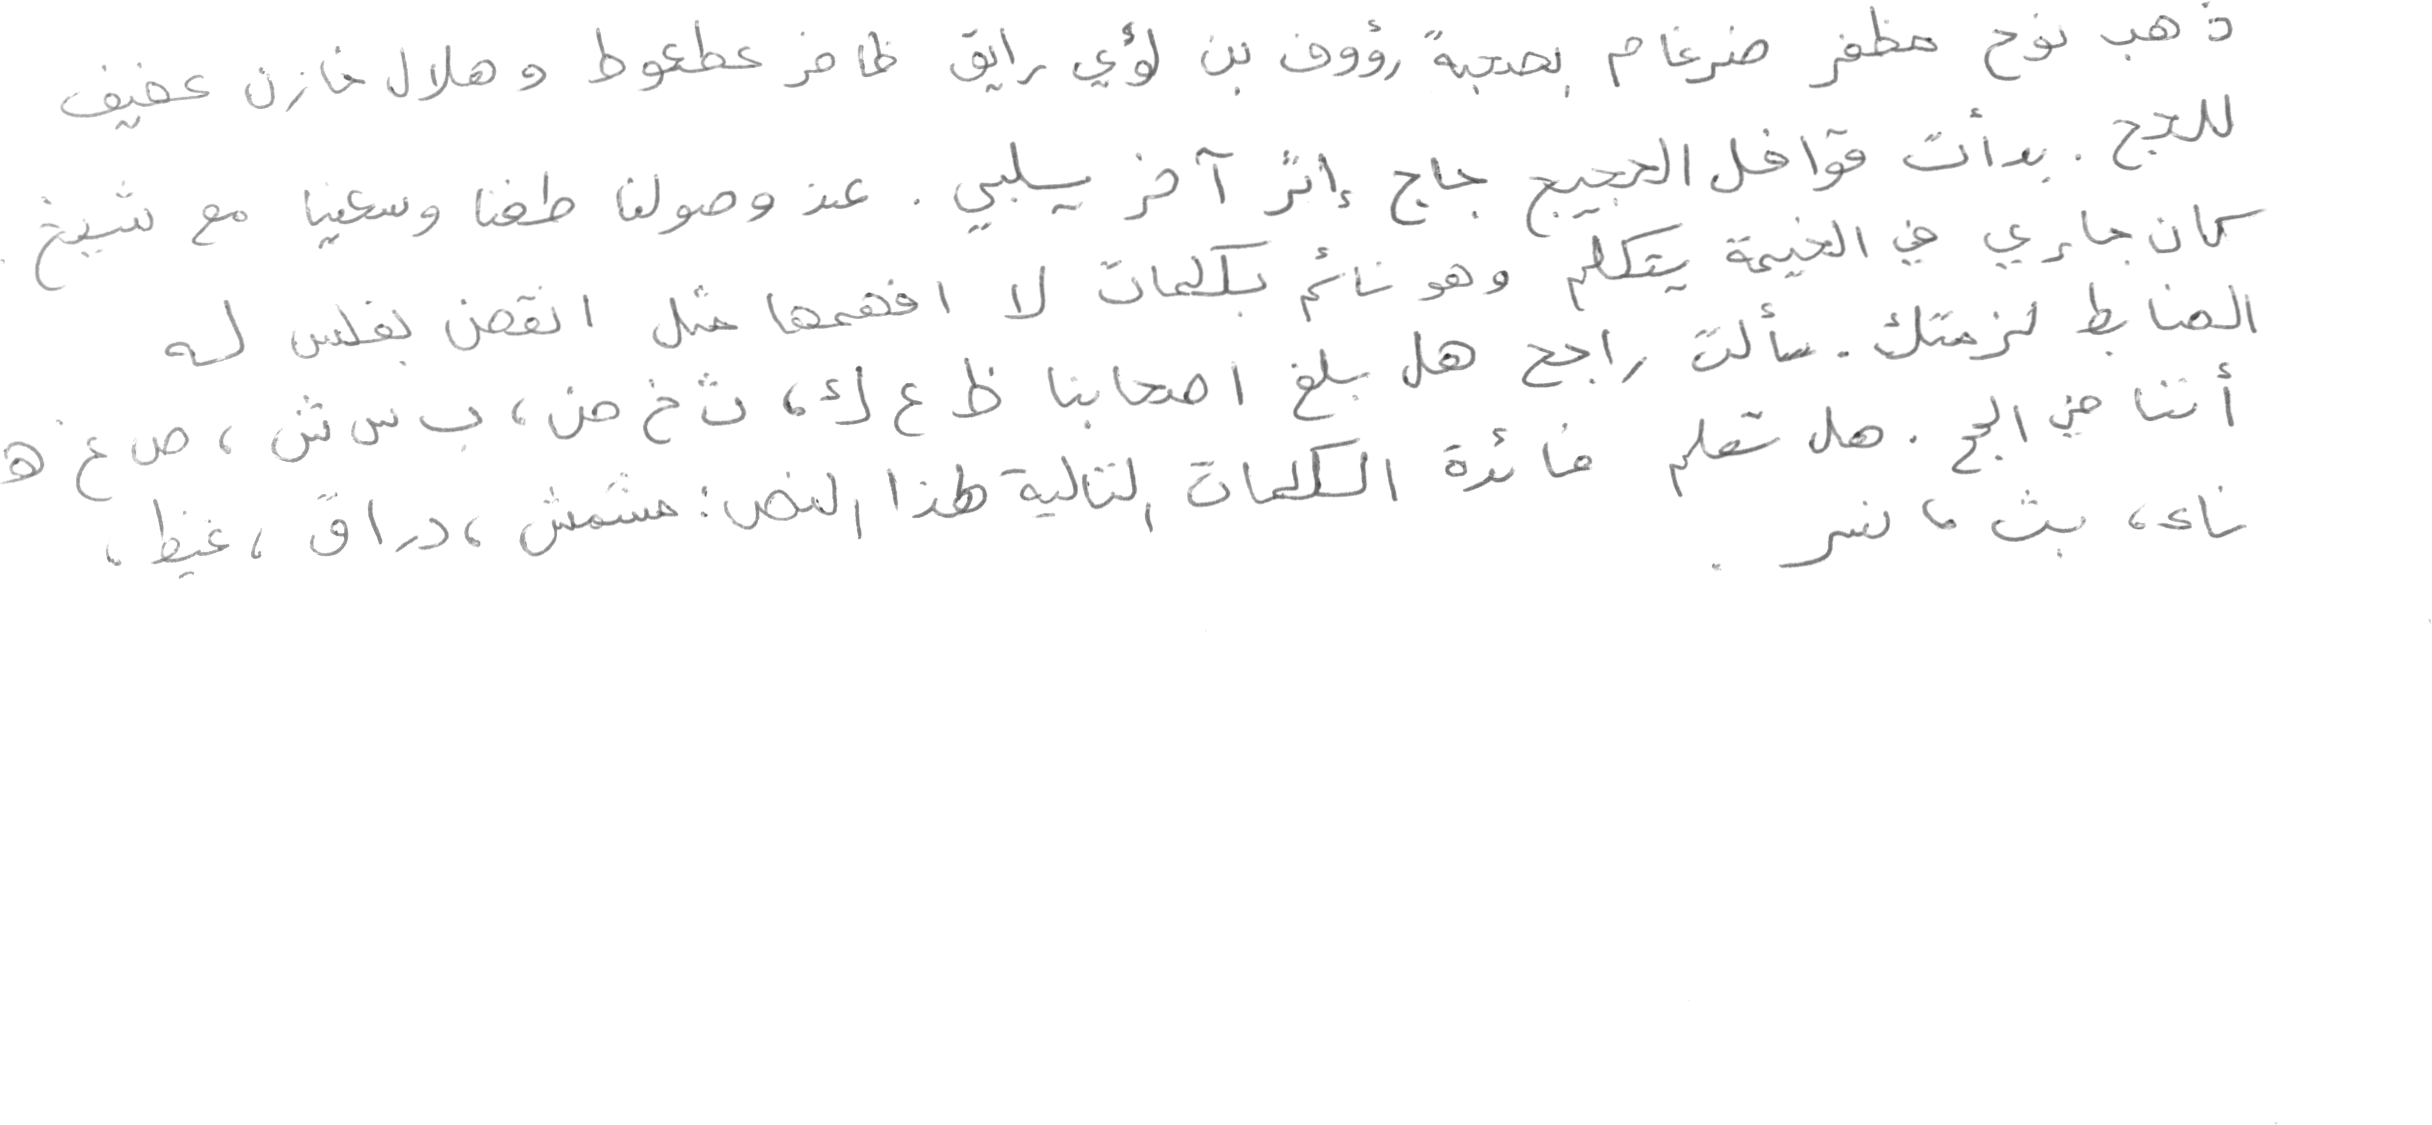 ذهب نوح مظفر ضرغام بصحبة رؤوف بن لؤي رايق ظافر عطعوط و هلال خازن عفيف
للحج . بدأت قوافل الحجيج حاج إثر آخر يلبي . عند وصولنا طفنا وسعينا مع شيخ .
كان جاري في الخيمة يتكلم وهو نائم بكلمات لا افهمها مثل انقض بفلس له
الضابط لزمتك . سألت راجح هل بلغ اصحابنا ظ ع ك، ث خ ض ، ب س ش ، ص غ ه
أننا في الحج . هل تعلم فائدة الكلمات التالية لهذا النص : مشمش ، دراق ، غيظ ،
ناء ، بث ، نسر .